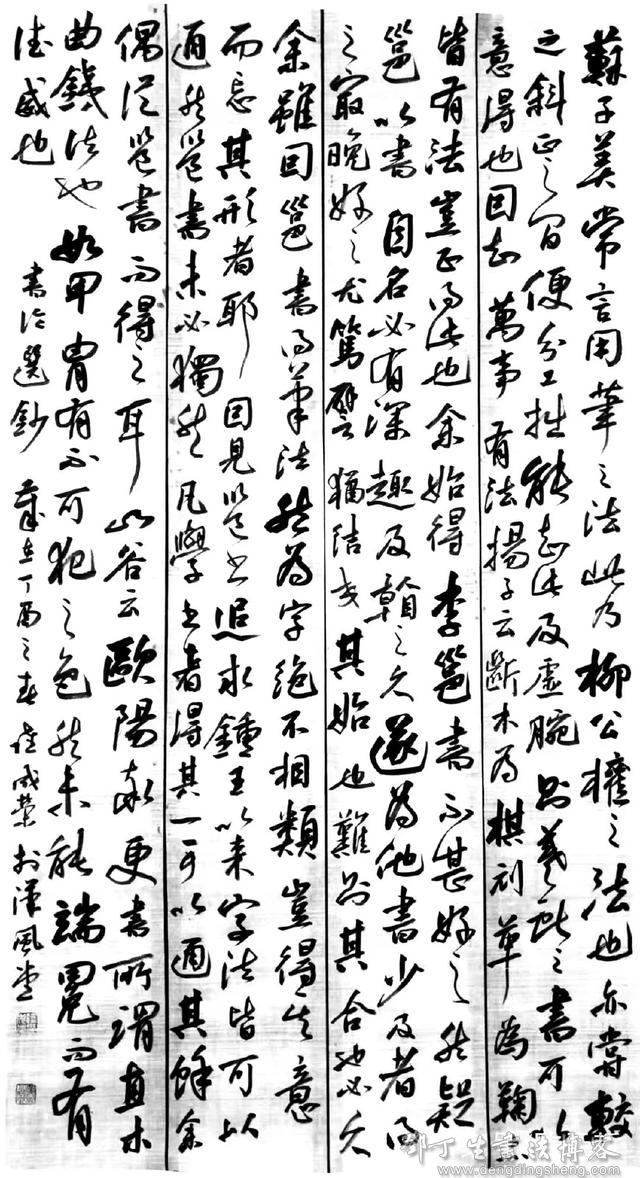 蘇子美常言用筆之法此乃柳公權之法也亦嘗較
之斜正之間便分工拙能知此及虛腕則羲獻之書可以
意得也因知萬事有法揚子云斷木為棋刓革為鞠亦
皆有法豈正得此也余始得李邕書不甚好之然疑
邕以書自名必有深趣及看之久遂為他書少及者得
之最晚好之尤篤譬猶結交其始也難則其合也必久
余雖因邕書得筆法然為字絕不相類豈得其意
而忘其形者耶因見邕書追求鍾王以來字法皆可以
通然邕書未必獨然凡學書者得其一可以通其餘余
偶從邕書而得之耳山谷云歐陽率更書所謂直木
曲鐵法也如甲冑有不可犯之色然未能端冕而有
德威也
書論選鈔 歲在丁酉之春 成榮於漢風堂
邓丁生书法博客
www.dengdingsheng.com